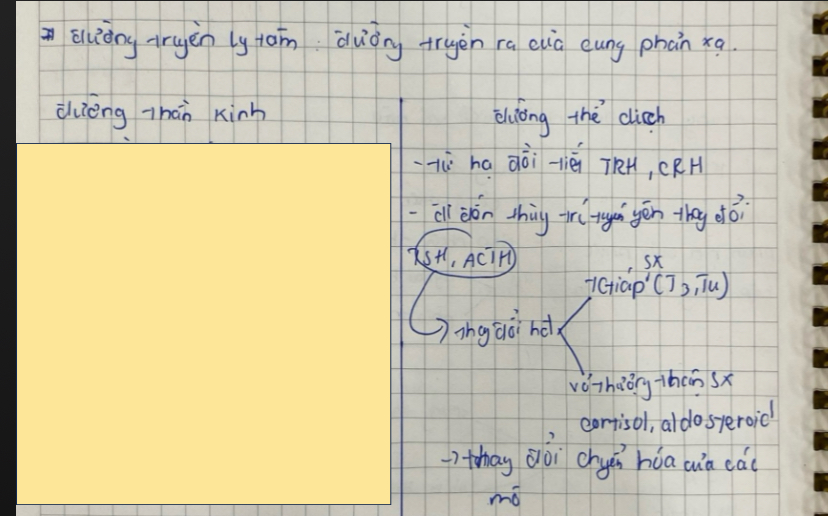 ⇒ đường truyền ly tâm : đường truyền ra của cung phản xạ.
đường thần kinh
đường thể dịch
- từ hạ đồi tiết TRH, CRH
- đi đến thùy trc tuyến yên thay đổi
TSH, ACTH
→ thay đổi hđ
TGiáp SX (T3, Tu)
vỏ thượng thận SX
cortisol, aldosteroid
→ thay đổi chuyển hóa của các
mô